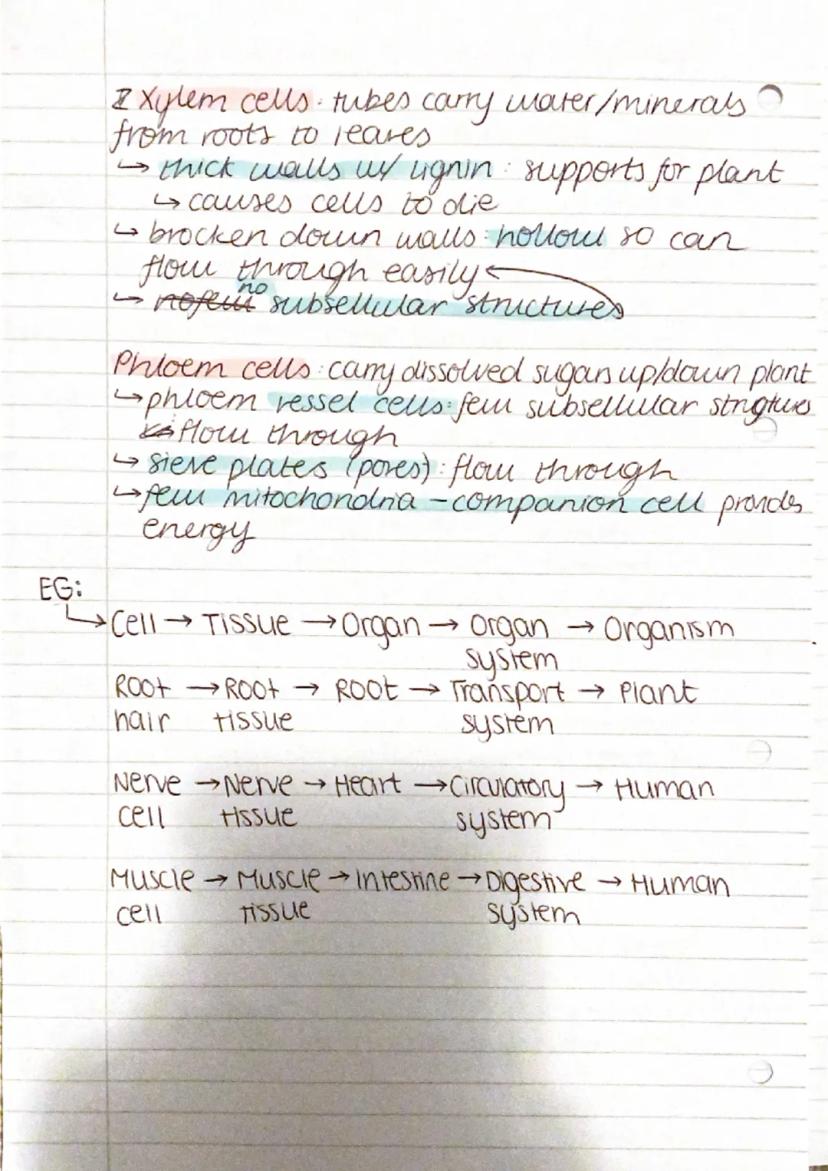 Xylem cells: tubes carry water/minerals
from roots to leaves
↳ thick walls w/ lignin: supports for plant
↳ causes cells to die
↳ brocken down walls: hollow so can
flow through easily ←
↳ no subsellular structures
Phloem cells: carry dissolved sugars up/down plant
↳ phloem vessel cells: few subsellular strctures
flow through
↳ sieve plates (pores): flow through
↳ few mitochondria - companion cell provides
energy
EG:
↳ Cell → Tissue → Organ → Organ → Organism
system
Root → Root → Root → Transport → Plant
hair tissue system
Nerve → Nerve → Heart → Circulatory → Human
cell tissue system
Muscle → Muscle → Intestine → Digestive → Human
cell tissue system